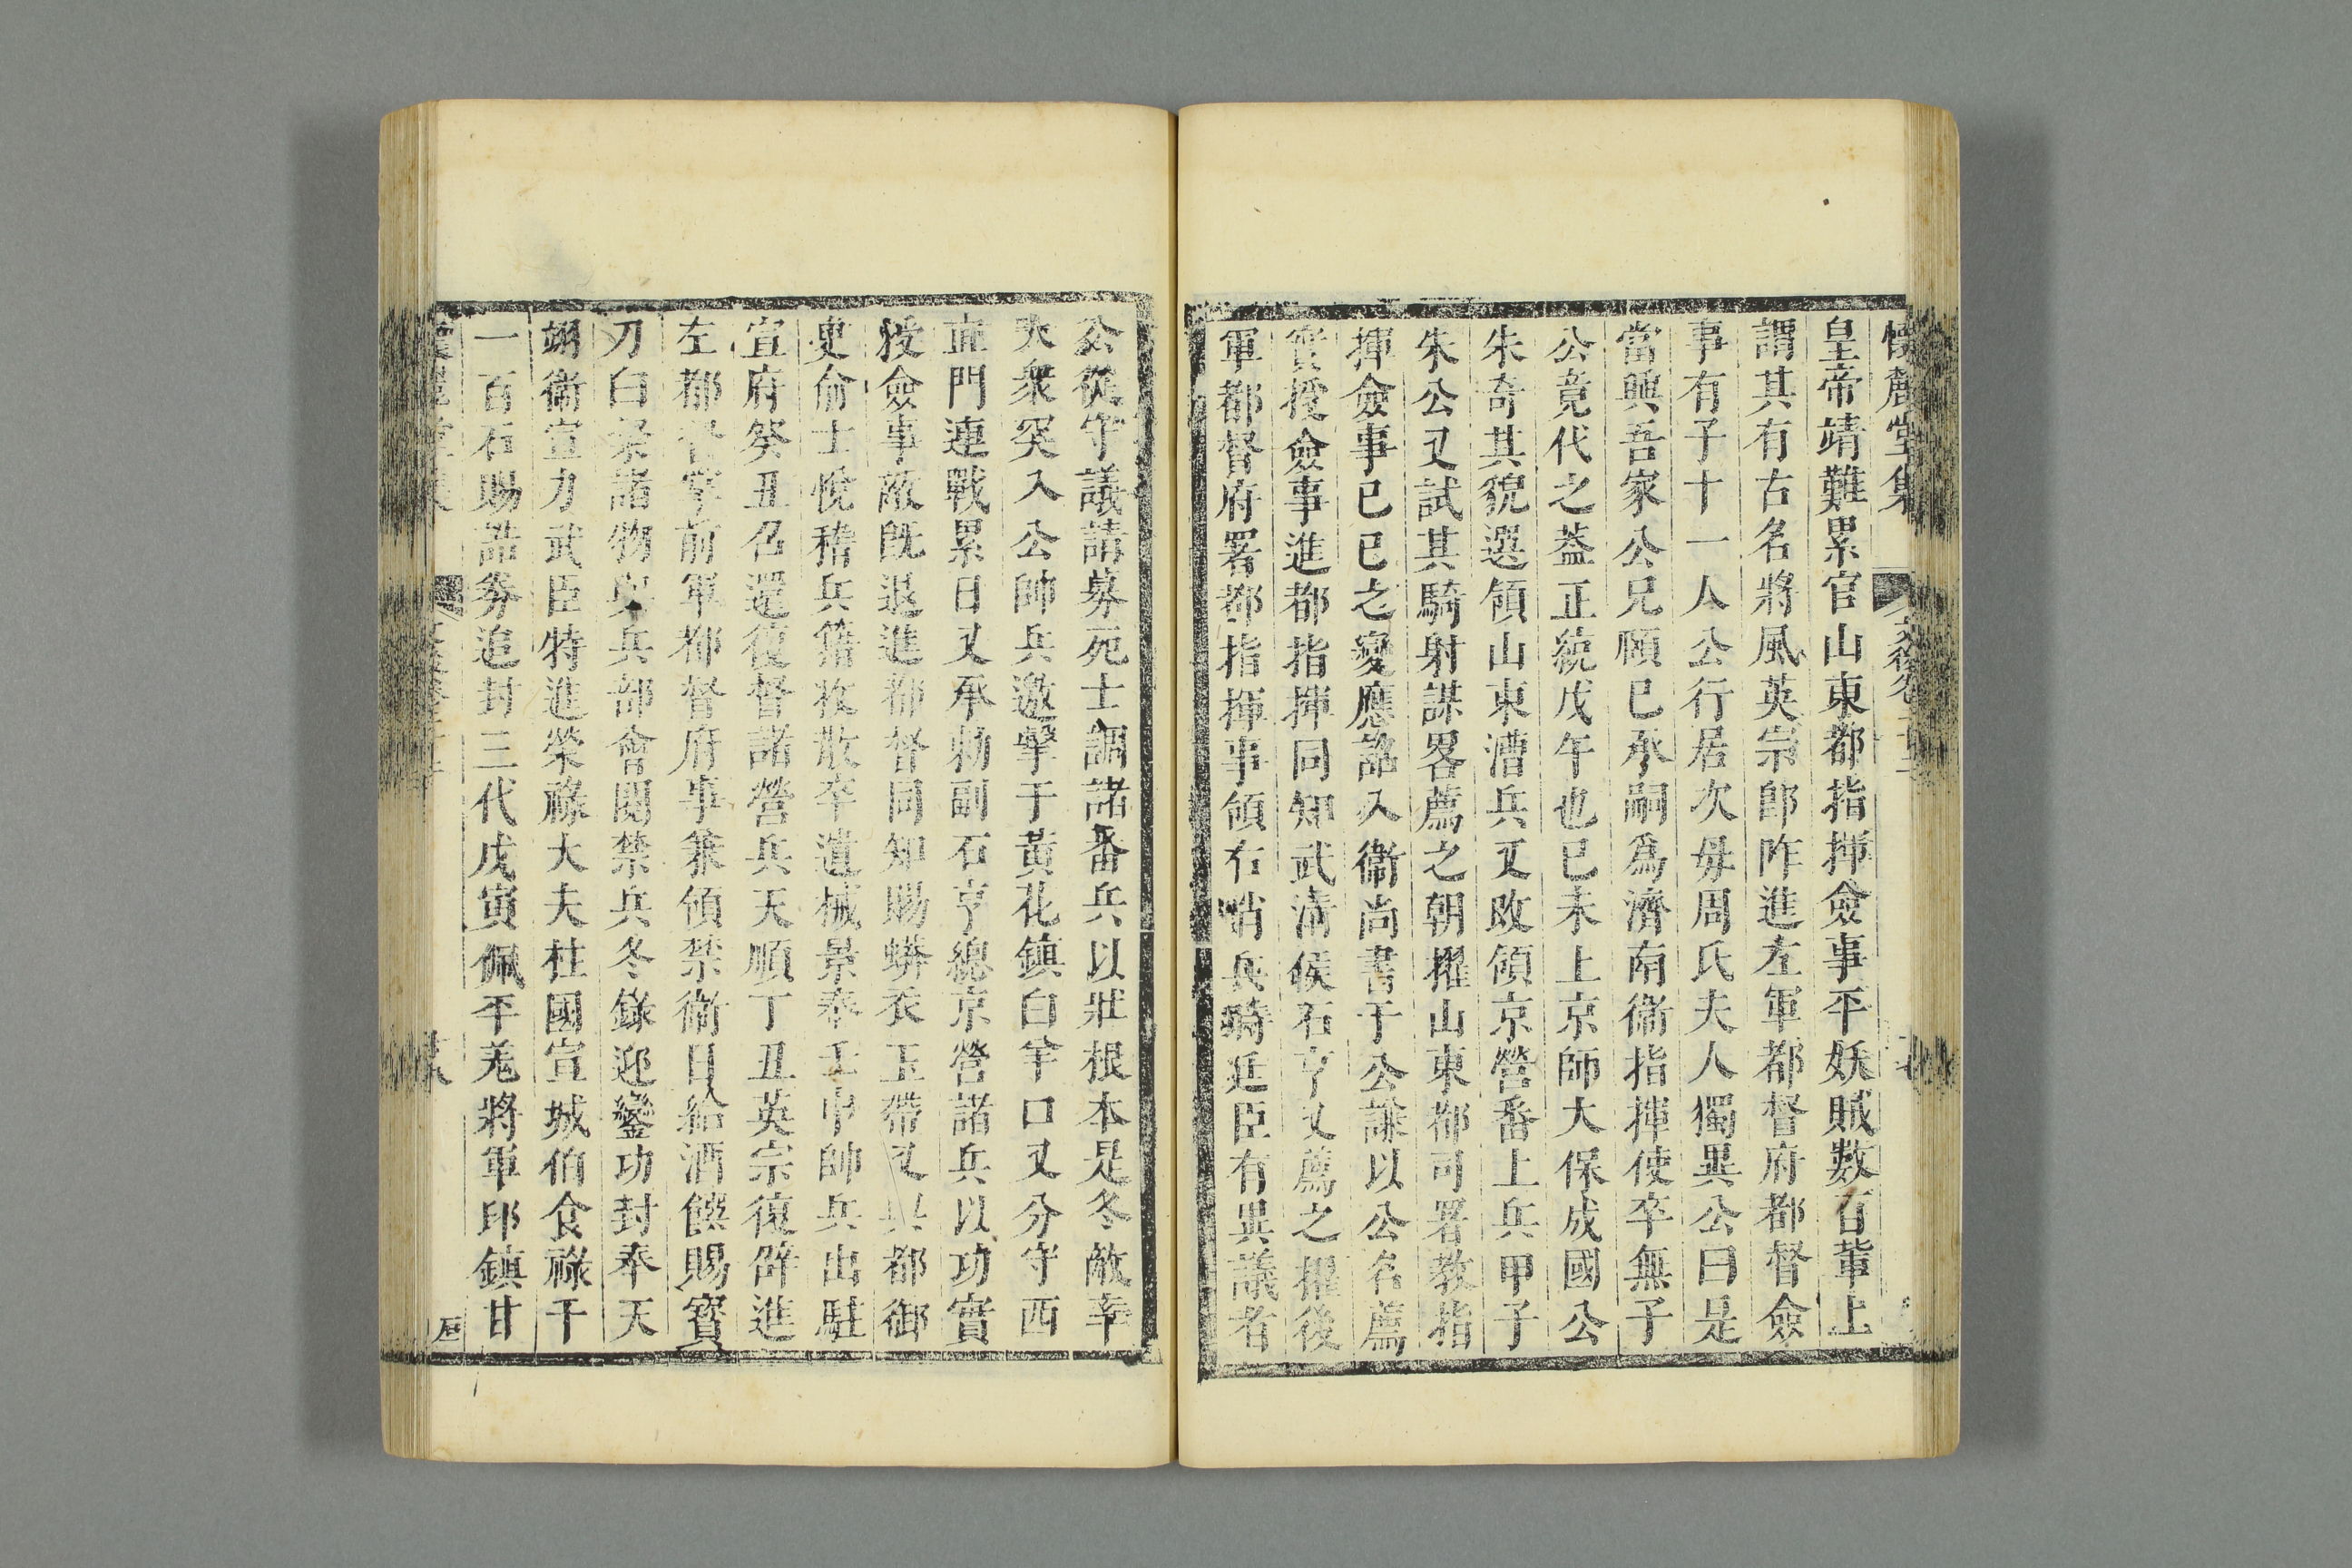 懷麓堂集 文後卷
皇帝靖難累官山東都指揮僉事平妖賊數百輩上
謂其有古名將風英宗卽阼進左軍都督府都督僉
事有子十一人公行居次毋周氏夫人獨異公曰是
當興吾家公兄順已承嗣爲濟南衞指揮使卒無子
公竟代之葢正統戊午也已未上京師大保成國公
朱奇其貌選領山東漕兵又改領京營番上兵甲子
朱公又試其騎射謀畧薦之朝擢山東都司署教指
揮僉事已巳之變應詔入衞尚書于公謙以公名薦
實授僉事進都指揮同知武淸侯石亨又薦之擢後
軍都督府署都指揮事領右哨兵時廷臣有異議者
公從守議請募死士調諸番兵以壯根本是冬敵幸
大衆突入公帥兵邀擊于黃花鎮白羊口又分守西
直門連戰累日又承勅副石亨總京營諸兵以功實
授僉事敵旣退進都督同知賜蟒衣玉帶又與都御
史俞士悅稽兵籍收散卒遺械景泰壬申帥兵出駐
宣府癸丑召還復督諸營兵天順丁丑英宗復辟進
左都督掌前軍都督府事兼領禁衞日給酒饌賜寶
刀白金諸物與兵部會閱禁兵冬錄迎鑾功封奉天
翊衞宣力武臣特進榮祿大夫柱國宣城伯食祿千
一百石賜誥劵追封三代戊寅佩平羗將軍印鎮甘